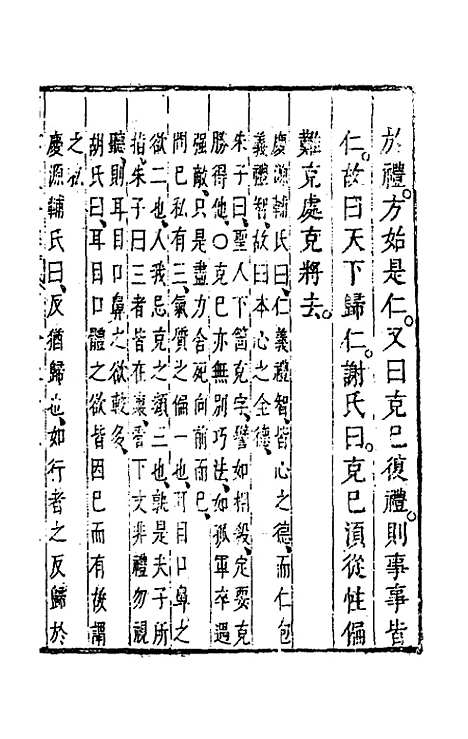 於禮。方始是仁。又曰克己復禮。則事事皆
仁。故曰天下歸仁。謝氏曰。克己須從性偏
難克處克將去。
慶源輔氏曰、仁義禮智、皆心之德、而仁包
義禮智、故曰本心之全德、
朱子曰、聖人下箇克字、譬如相殺、定要克
勝得他、〇克己亦無別巧法、如孤軍卒遇
强敵、只是盡力舍死向前而已、
問己私有三、氣質之偏一也、耳目口鼻之
欲二也、人我忌克之類三也、孰是夫子所
指、朱子曰三者皆在裏、看下文非禮勿視
聽、則耳目口鼻之欲較多、
胡氏曰、耳目口體之欲皆因己而有後謂
之私
慶源輔氏曰、反猶歸也、如行者之反歸於